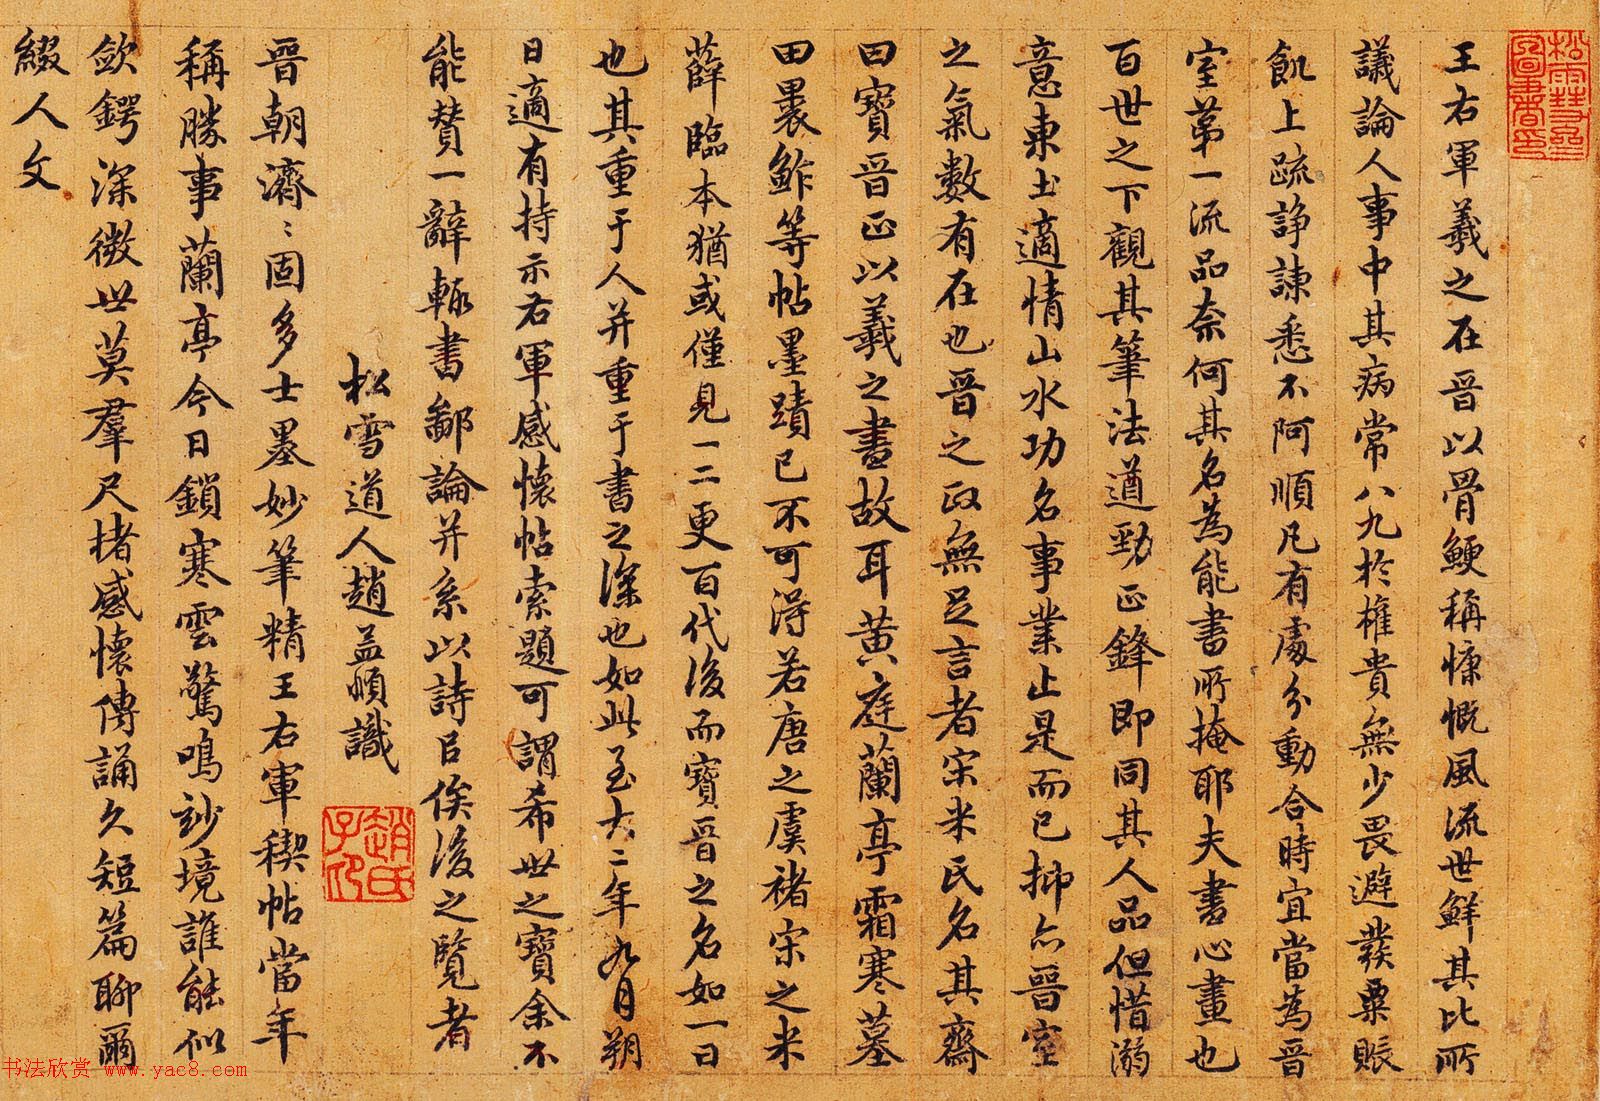 王右軍羲之在晉以骨鯁稱慷慨風流世鮮其比所
議論人事中其病常八九於權貴無少畏避發粟賑
飢上疏諍諫悉不阿順凡有處分動合時宜當為晉
室第一流品奈何其名為能書所掩耶夫書心畫也
百世之下觀其筆法遒勁正鋒即同其人品但惜溺
意東土適情山水功名事業止是而已抑亦晉室
之氣數有在也晉之政無足言者宋米氏名其齋
曰寶晉正以羲之畫故耳黃庭蘭亭霜寒墓
田裹鮓等帖墨蹟已不可得若唐之虞褚宋之米
薛臨本猶或僅見一二更百代後而寶晉之名如一日
也其重于人并重于書之深也如此至大二年九月朔
日適有持示右軍感懷帖索題可謂希世之寶余不
能贊一辭輒書鄙論并系以詩㠯俟後之覽者
松雪道人趙孟頫識
趙氏子昂
晉朝濟〻固多士墨妙筆精王右軍稧帖當年
稱勝事蘭亭今日鎖寒雲驚鳴訬境誰能似
歛鍔深微世莫羣尺楮感懷傳誦久短篇聊爾
綴人文
书法欣赏 www.yac8.com